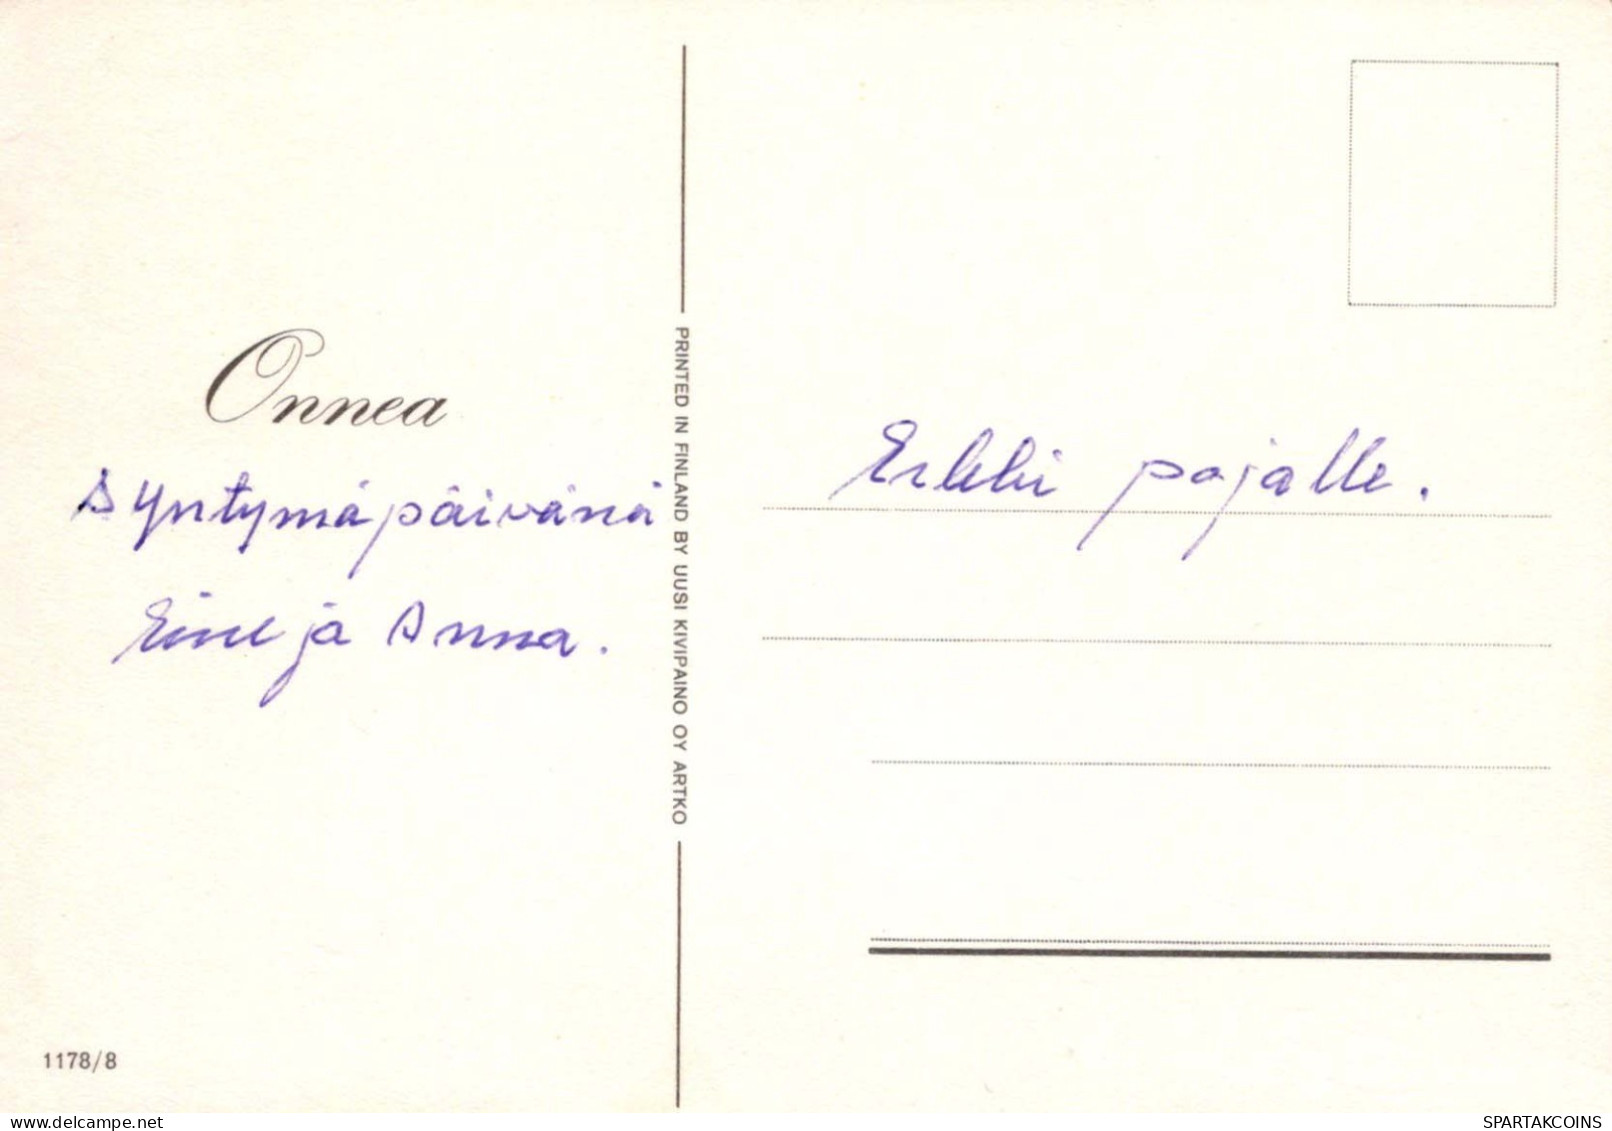 Onnea
Syntymäpäivänä
Eine ja Anna.
PRINTED IN FINLAND BY UUSI KIVIPAINO OY ARTKO
Erkki pojalle.
1178/8
SPARTAKCOINS